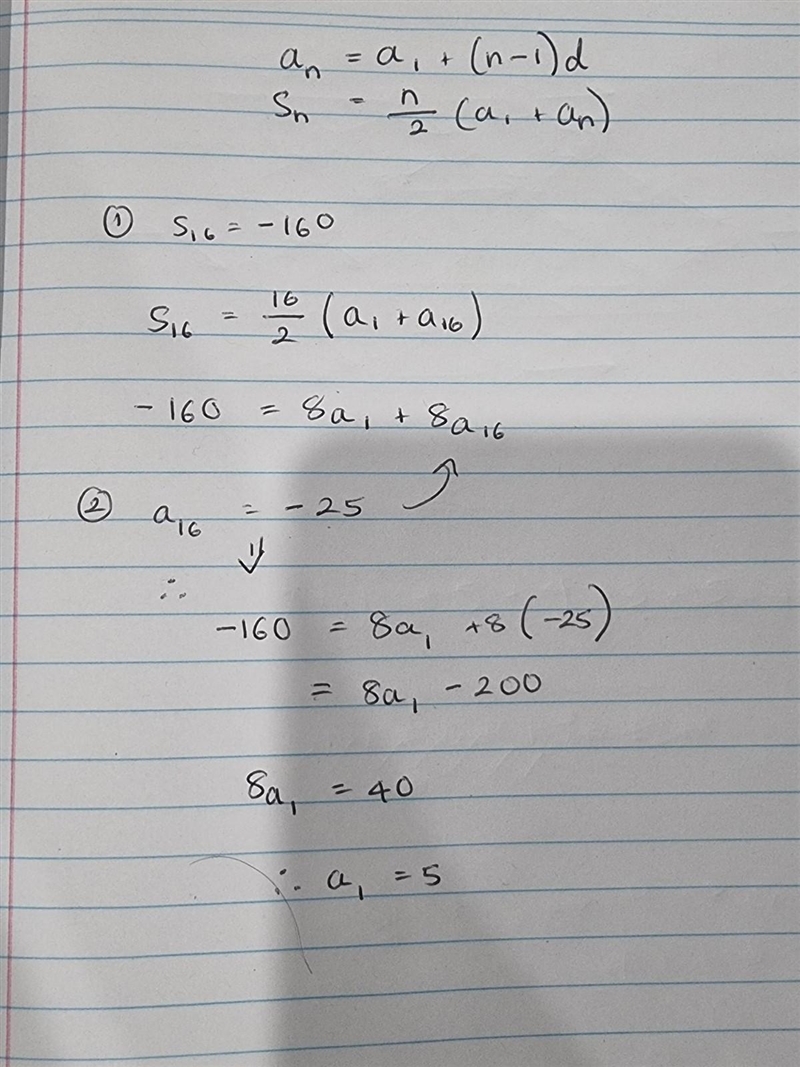 aₙ = a₁ + (n-1)d
Sₙ = n/2 (a₁ + aₙ)
① S₁₆ = -160
S₁₆ = 16/2 (a₁ + a₁₆)
-160 = 8a₁ + 8a₁₆
② a₁₆ = -25
∴
-160 = 8a₁ +8(-25)
= 8a₁ - 200
8a₁ = 40
∴ a₁ = 5